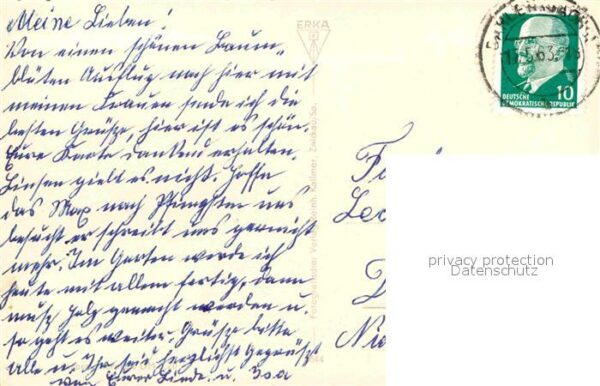 Meine Lieben!
Von einen schönen Baum-
blüten Ausflug nach hier mit
meinen Frauen sende ich die
besten Grüße, hier ist es schön.
Eure Karte dankend erhalten.
Linsen gielt es nicht. Hoffe
das Max nach Pfingsten uns
besucht er schreibt uns garnicht
mehr. Im Garten werde ich
heute mit allem fertig, dann
muß Holz gemacht werden u.
so geht es weiter. Grüße bitte
alle u. Ihr seid herzlichst Gegrüßt
von Eurer u. Isa
ERKA
Fotografischer Verlag Reinh. Kallmer, Zwickau/Sa.
63
10
DEUTSCHE
DEMOKRATISCHE REPUBLIK
privacy protection
Datenschutz